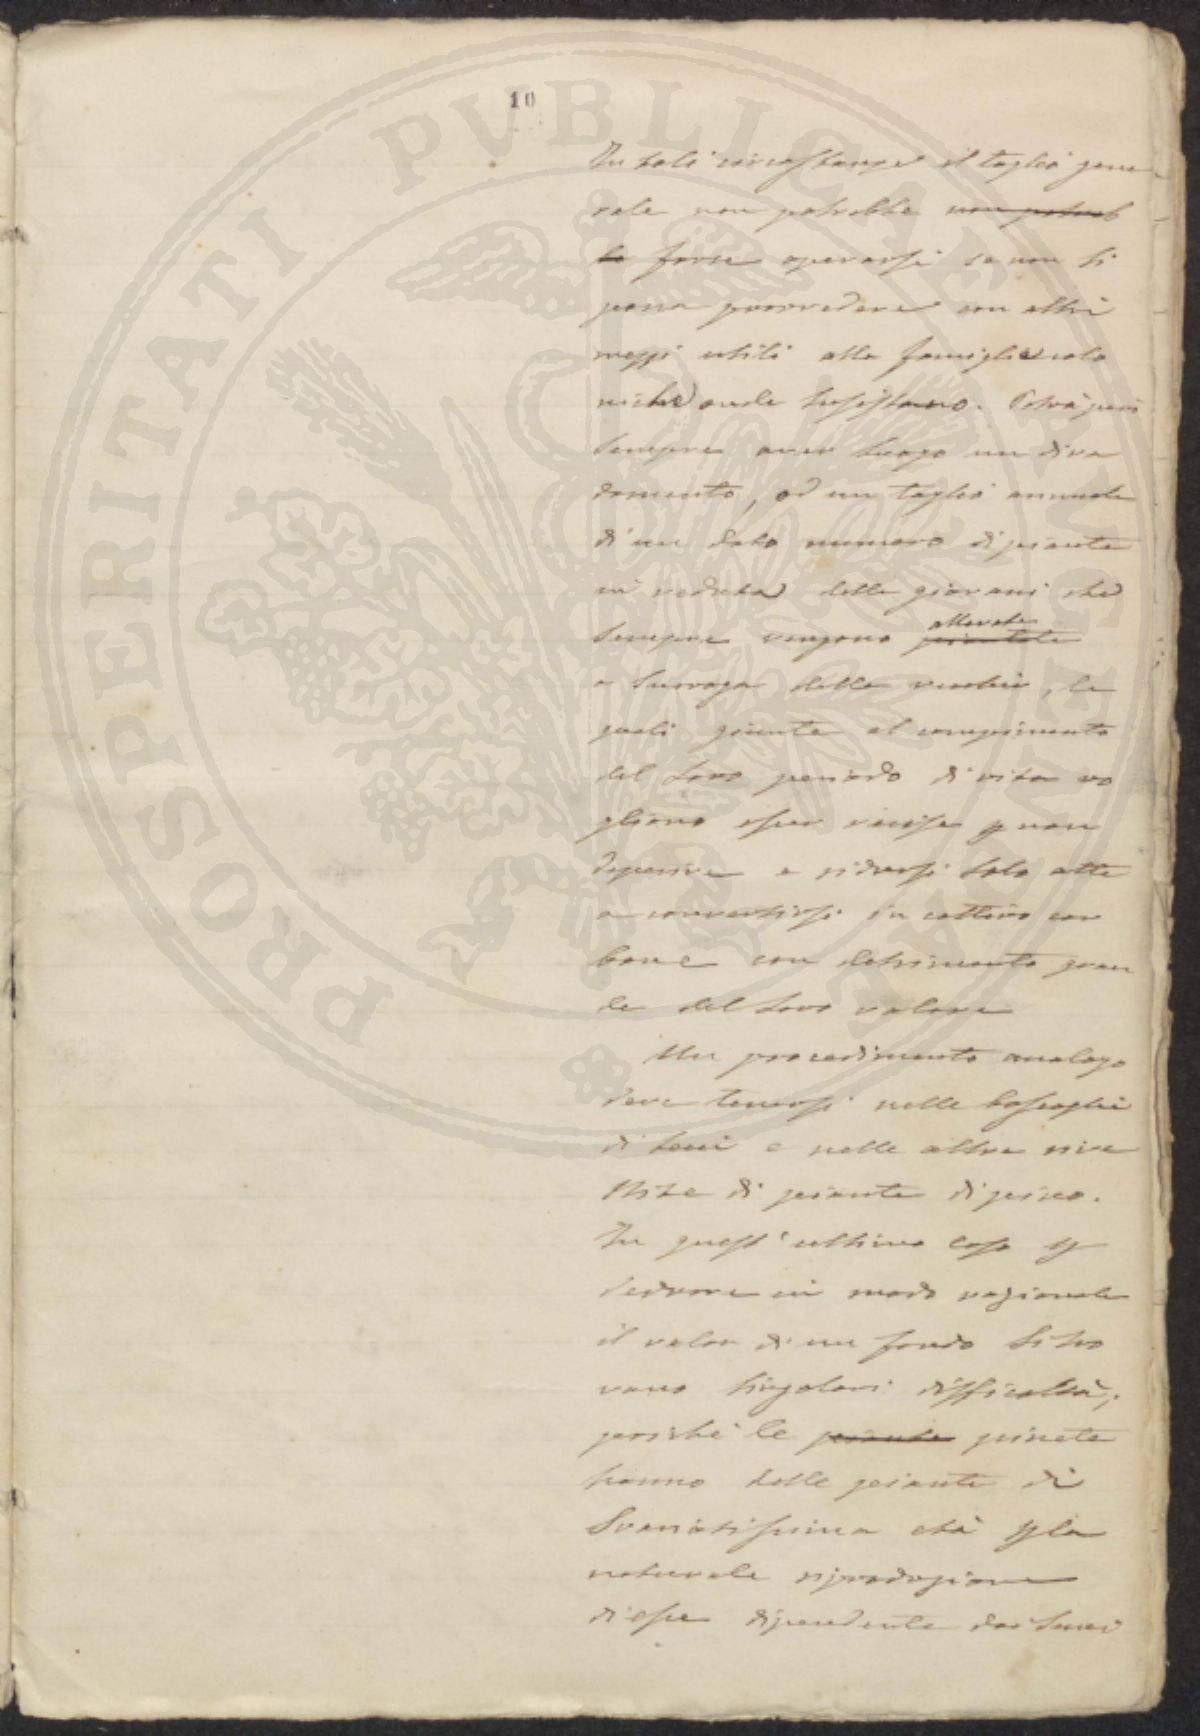 10
In tali circostanze il taglio gene-
rale non potrebbe non potreb
be forse operarsi se non si
possa provvedere con altri
mezzi utili alle famiglie colo
niche onde sussistano. Potrà però
sempre aver luogo un dira
damento, od un taglio annuale
di un dato numero di piante
in veduta delle giovani che
allevate
sempre vengono piantate
a surroga delle vecchie, le
quali giunte al compimento
del loro periodo di vita vo
gliono esser recise p non
deperire e ridursi solo atte
a convertirsi in cattivo car
bone con detrimento gran
de del loro valore
Un procedimento analogo
deve tenersi nelle boscaglie
di lecci e nelle altre rive
stite di piante di pino.
In quest'ultimo caso p
dedurre in modo razionale
il valor di un fondo si tro
vano singolari difficoltà,
perché le piante pinete
hanno delle piante di
svariatissima età p la
naturale riproduzione
di esse dipendente dai semi
PROSPERITATI PVBLICAE AVGENDAE